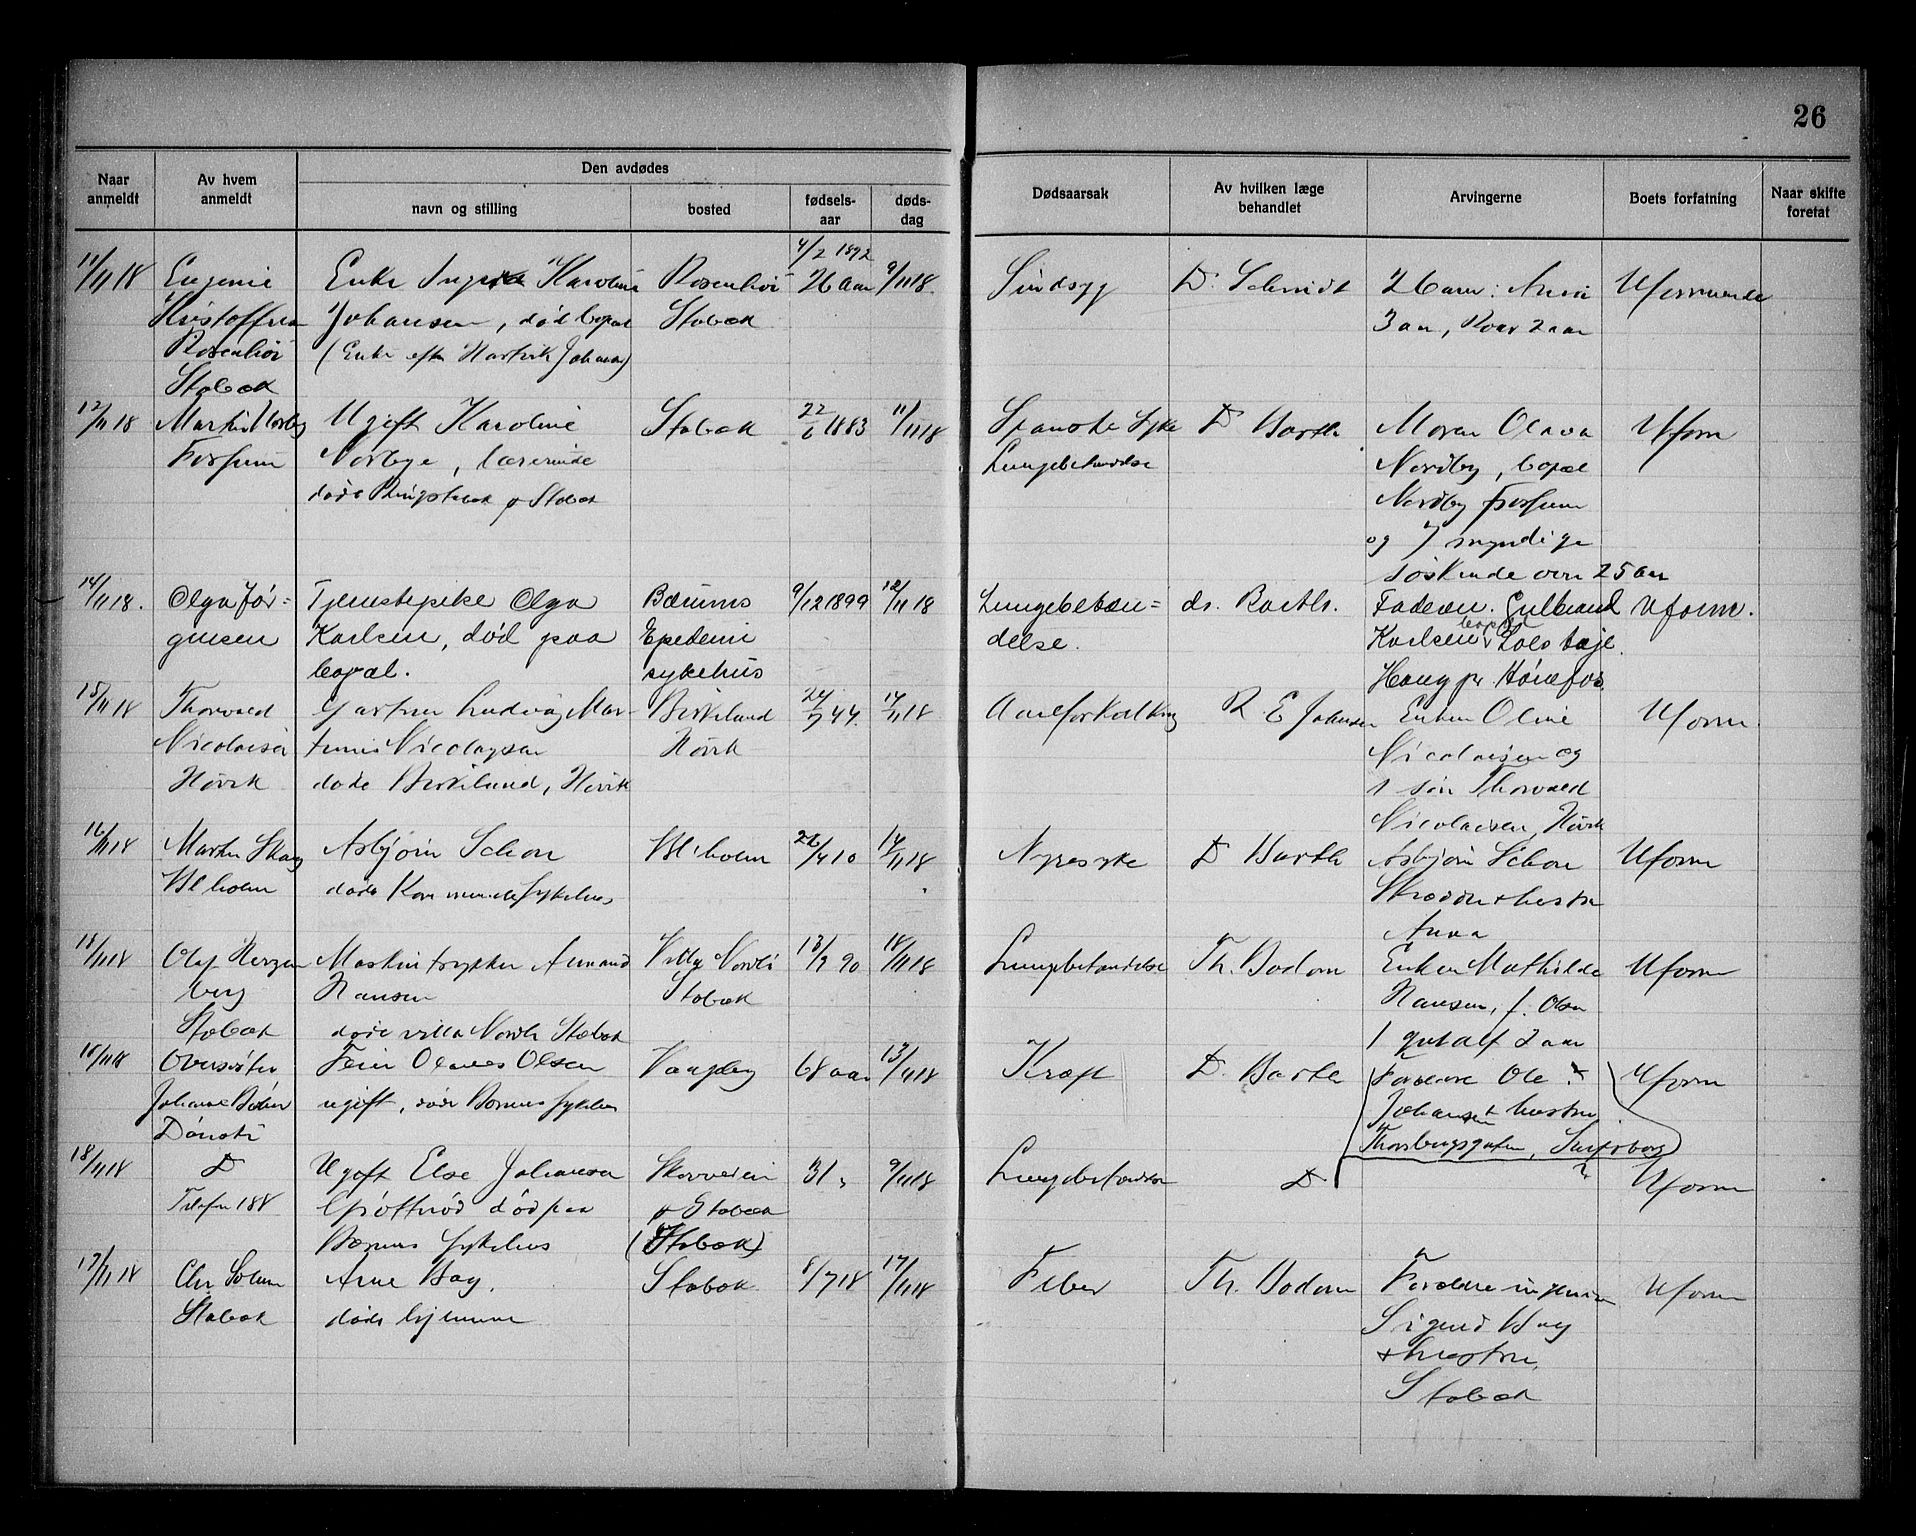 26
Den avdødes
Naar anmeldt
Av hvem anmeldt
navn og stilling
bosted
fødsels-aar
døds-dag
Dødsaarsak
Av hvilken læge behandlet
Arvingerne
Boets forfatning
Naar skifte foretat
11/11 18
Eugenie
Stabæk
Enke Karoline
Johansen, død bopæl
(Enke efter Hartvik Johansen)
Stabæk
4/2 1892
26 aar
9/11 18
Sindsyg
D. Schmidt
3 aar, Roar 2 aar
Uformuende
12/11 18
Martin Norby
Fossum
Ugift Karoline
Norbye, lærerinde
døde Ringstabæk p Stabæk
Stabæk
22/6 1883
11/11 18
Spanske syke
Lungebetændelse
D Barth
Moren Olava
Nordby, bopæl
Nordby Fossum
og 7 myndige
søskende over 25 aar
Uform
14/11 18.
Olga Jør-
gensen
Tjenestepike Olga
Karlsen, død paa
bopæl.
Bærums
Epedemi
sykehus
9/12 1899
12/11 18
Lungebetæn-
delse.
dr. Barth.
Faderen. Gulbrand
Karlsen bopæl
Haug pr Hønefos
Uform.
15/11 18
Thorvald
Nicolaisen
Høvik
Gartner Ludvig Mar-
tinius Nicolaysen
døde Birkilund, Høvik
Birkilund
Høvik
24/7 44.
14/11 18
Aareforkalkning
R. E Johansen
Enken Oline
Nicolaisen og
1 søn Thorvald
Nicolaisen, Høvik
Uform
16/11 18
Martin Skaug
Asbjørn Schou
døde Kommunesykehus
14/11 18
Nyresyke
D Barth
Asbjørn Schou
Skrædder + hustru
Anna
Uform
18/11 18
Olaf Herzen
berg
Stabæk
Maskintrykker Armand
Hansen
døde villa Nordli Stabæk
Villa Nordli
Stabæk
13/9 90
18/11 18
Lungebetændelse
Th. Bodom
Enken Mathilde
Hansen, f. Olsen
1 gut alf 2 aar
Uform
18/11 18
Oversøster
Johanne Bøhn
Dønski
Feier Olsen
ugift, døde Bærums sykehus
68 aar
13/11 18
Kræft
D. Barth
Forældre Ole ?
Johansen + hustru
Thorsbergsgaten, Sarpsborg
Uform
18/11 18
D
Telefon 188
Ugift Else Johansen
Grøtterød død paa
Bærums sykehus
Skovveien
p Stabæk
(Stabæk)
31 "
9/11 18
Lungebetændelse
D
?
Uform
17/11 18
Chr Solum
Stabæk
Arne Bay.
døde hjemme
Stabæk
8/7 18
17/11 18
Feber
Th. Bodom
Forældre ingeniør
Sigurd Bay
+ hustru,
Stabæk
Uform